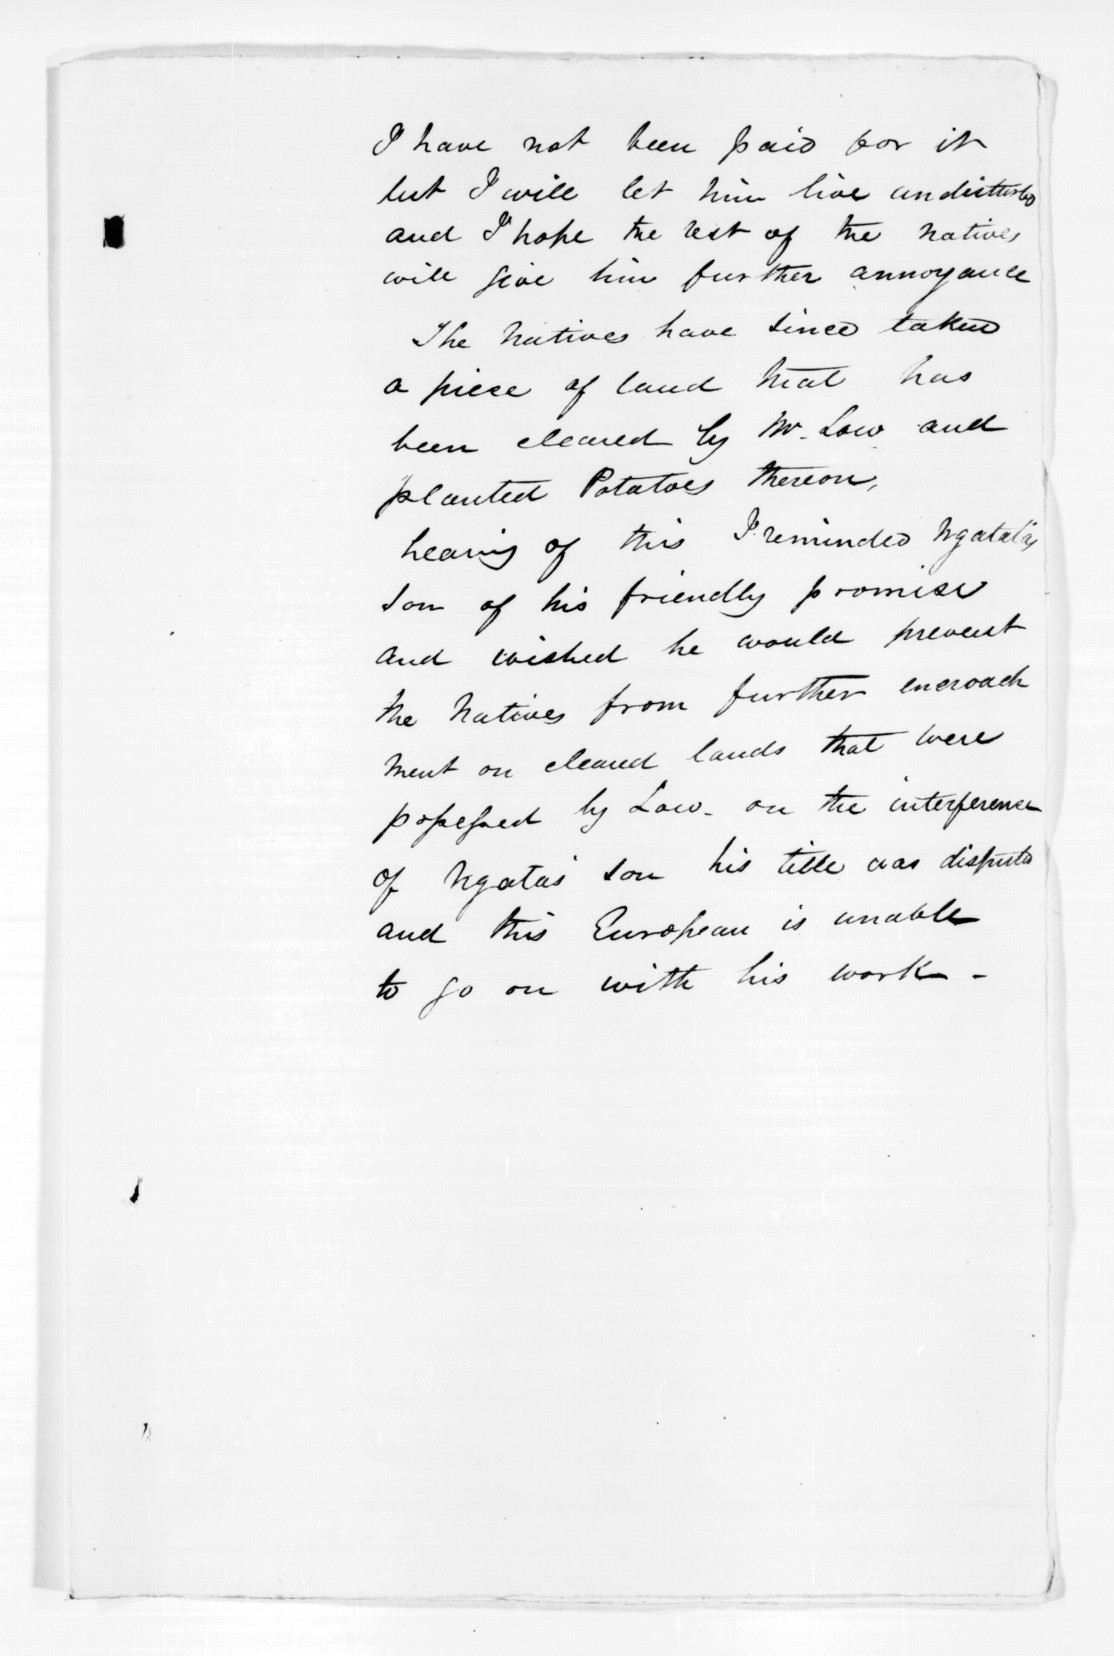 I have not been paid for it
but I will let him live undisturbed
and I hope the rest of the natives
will give him further annoyance
The Natives have since taken
a piece of land that has
been cleared by Mr. Low and
planted Potatoes thereon,
hearing of this I reminded Ngatata's
son of his friendly promise
and wished he would prevent
the Natives from further encroach
ment on cleared lands that were
possessed by Low - on the interference
of Ngata's son his title was disputed
and this European is unable
to go on with his work -